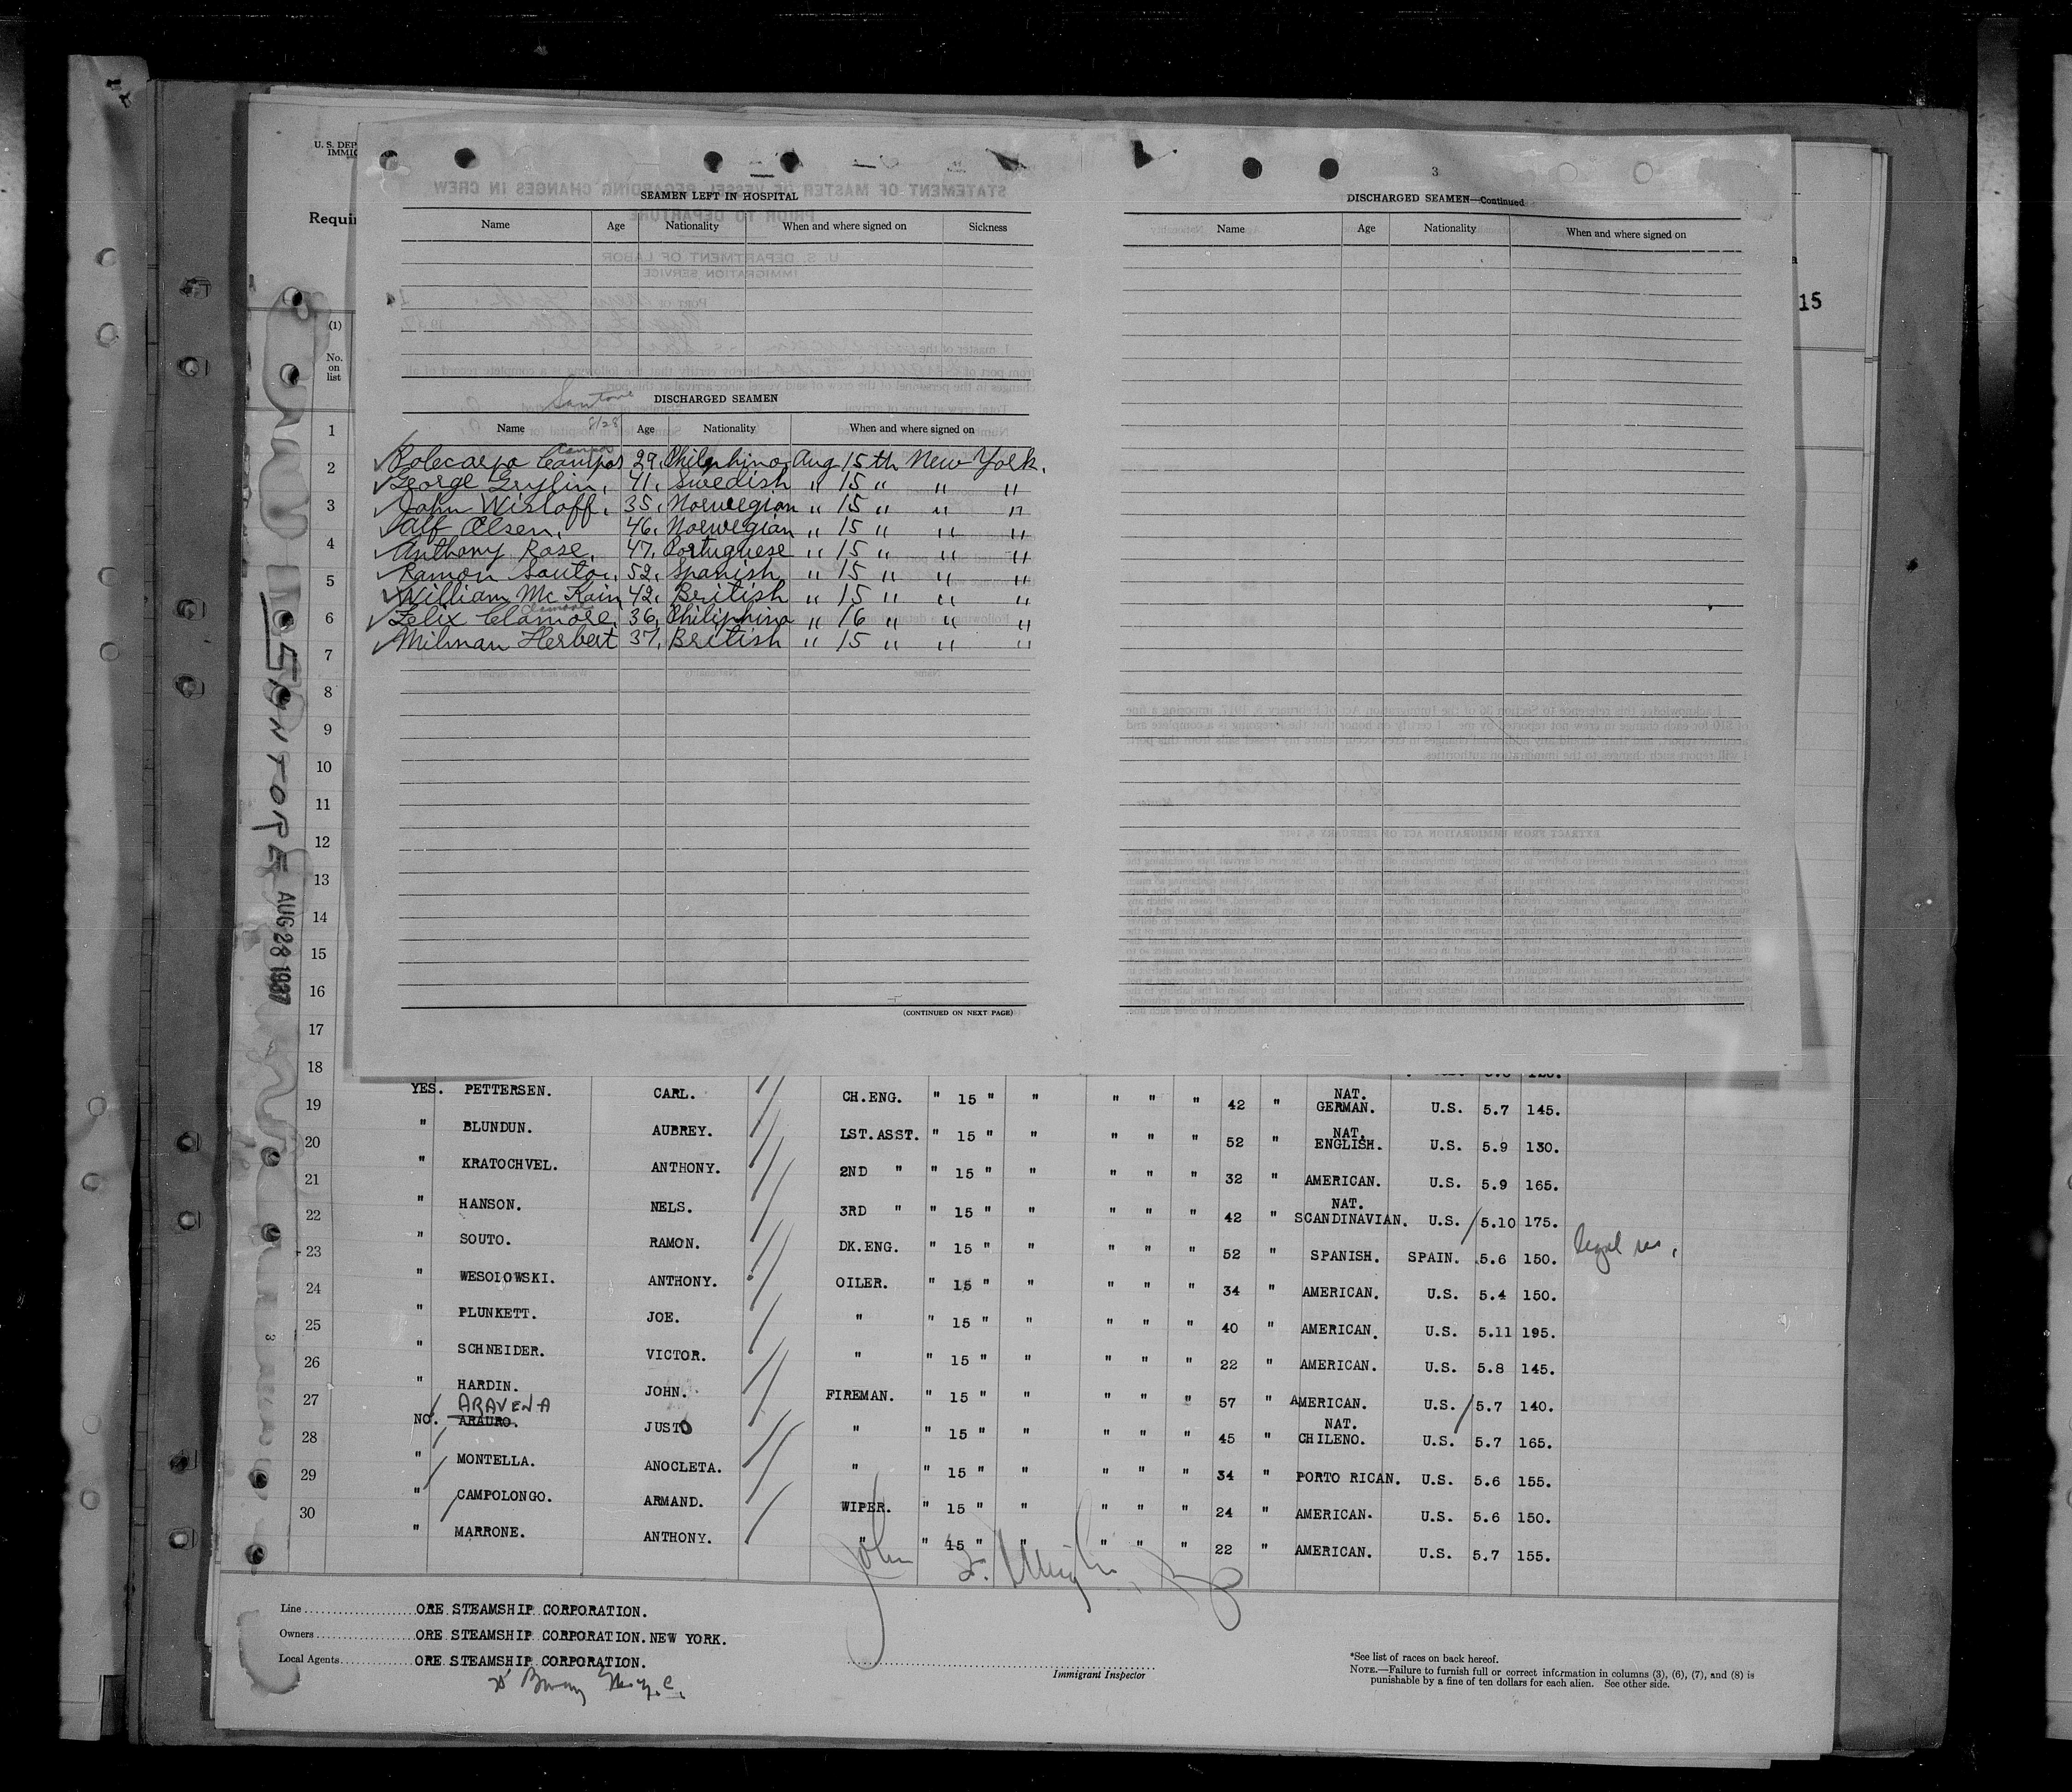 U. S. DEP
IMMIG
Requir
3
15
SEAMEN LEFT IN HOSPITAL
Name Age Nationality When and where signed on Sickness
DISCHARGED SEAMEN—Continued
Name Age Nationality When and where signed on
Santore
8/28
DISCHARGED SEAMEN
Name Age Nationality When and where signed on
Campos
Polecarpo Campos 29, Philiphino Aug 15th New York.
George Grylin, 41, Swedish " 15 " " "
John Wisloff, 35, Norwegian " 15 " " "
Alf Olsen, 46, Norwegian " 15 " " "
Anthony Rose, 47, Portuguese " 15 " " "
Ramon Souto, 52, Spanish " 15 " " "
William Mc Kain 42, British " 15 " " "
Clamore
Felix Clamore, 36, Philiphino " 16 " " "
Milman Herbert 37, British " 15 " " "
(CONTINUED ON NEXT PAGE)
(1)
No. on list
1
2
3
4
5
6
7
8
9
10
11
12
13
14
15
16
17
18
SANTORE
AUG 28 1937
YES. PETTERSEN. CARL. CH.ENG. " 15 " " " " " 42 " NAT. GERMAN. U.S. 5.7 145.
19
" BLUNDUN. AUBREY. 1ST.ASST. " 15 " " " " " 52 " NAT. ENGLISH. U.S. 5.9 130.
20
" KRATOCHVEL. ANTHONY. 2ND " " 15 " " " " " 32 " AMERICAN. U.S. 5.9 165.
21
" HANSON. NELS. 3RD " " 15 " " " " " 42 " NAT. SCANDINAVIAN. U.S. 5.10 175.
22
" SOUTO. RAMON. DK.ENG. " 15 " " " " " 52 " SPANISH. SPAIN. 5.6 150. legal res,
23
" WESOLOWSKI. ANTHONY. OILER. " 15 " " " " " 34 " AMERICAN. U.S. 5.4 150.
24
" PLUNKETT. JOE. " " 15 " " " " " 40 " AMERICAN. U.S. 5.11 195.
25
" SCHNEIDER. VICTOR. " " 15 " " " " " 22 " AMERICAN. U.S. 5.8 145.
26
" HARDIN. JOHN. FIREMAN. " 15 " " " " " 57 " AMERICAN. U.S. 5.7 140.
27
ARAVENA
NO. ARAURO. JUSTO " " 15 " " " " " 45 " NAT. CHILENO. U.S. 5.7 165.
28
" MONTELLA. ANOCLETA. " " 15 " " " " " 34 " PORTO RICAN. U.S. 5.6 155.
29
" CAMPOLONGO. ARMAND. WIPER. " 15 " " " " " 24 " AMERICAN. U.S. 5.6 150.
30
" MARRONE. ANTHONY. " " 15 " " " " " 22 " AMERICAN. U.S. 5.7 155.
John
Line ORE STEAMSHIP CORPORATION.
Owners ORE STEAMSHIP CORPORATION. NEW YORK.
Local Agents ORE STEAMSHIP CORPORATION.
Immigrant Inspector
*See list of races on back hereof.
NOTE.—Failure to furnish full or correct information in columns (3), (6), (7), and (8) is
punishable by a fine of ten dollars for each alien. See other side.